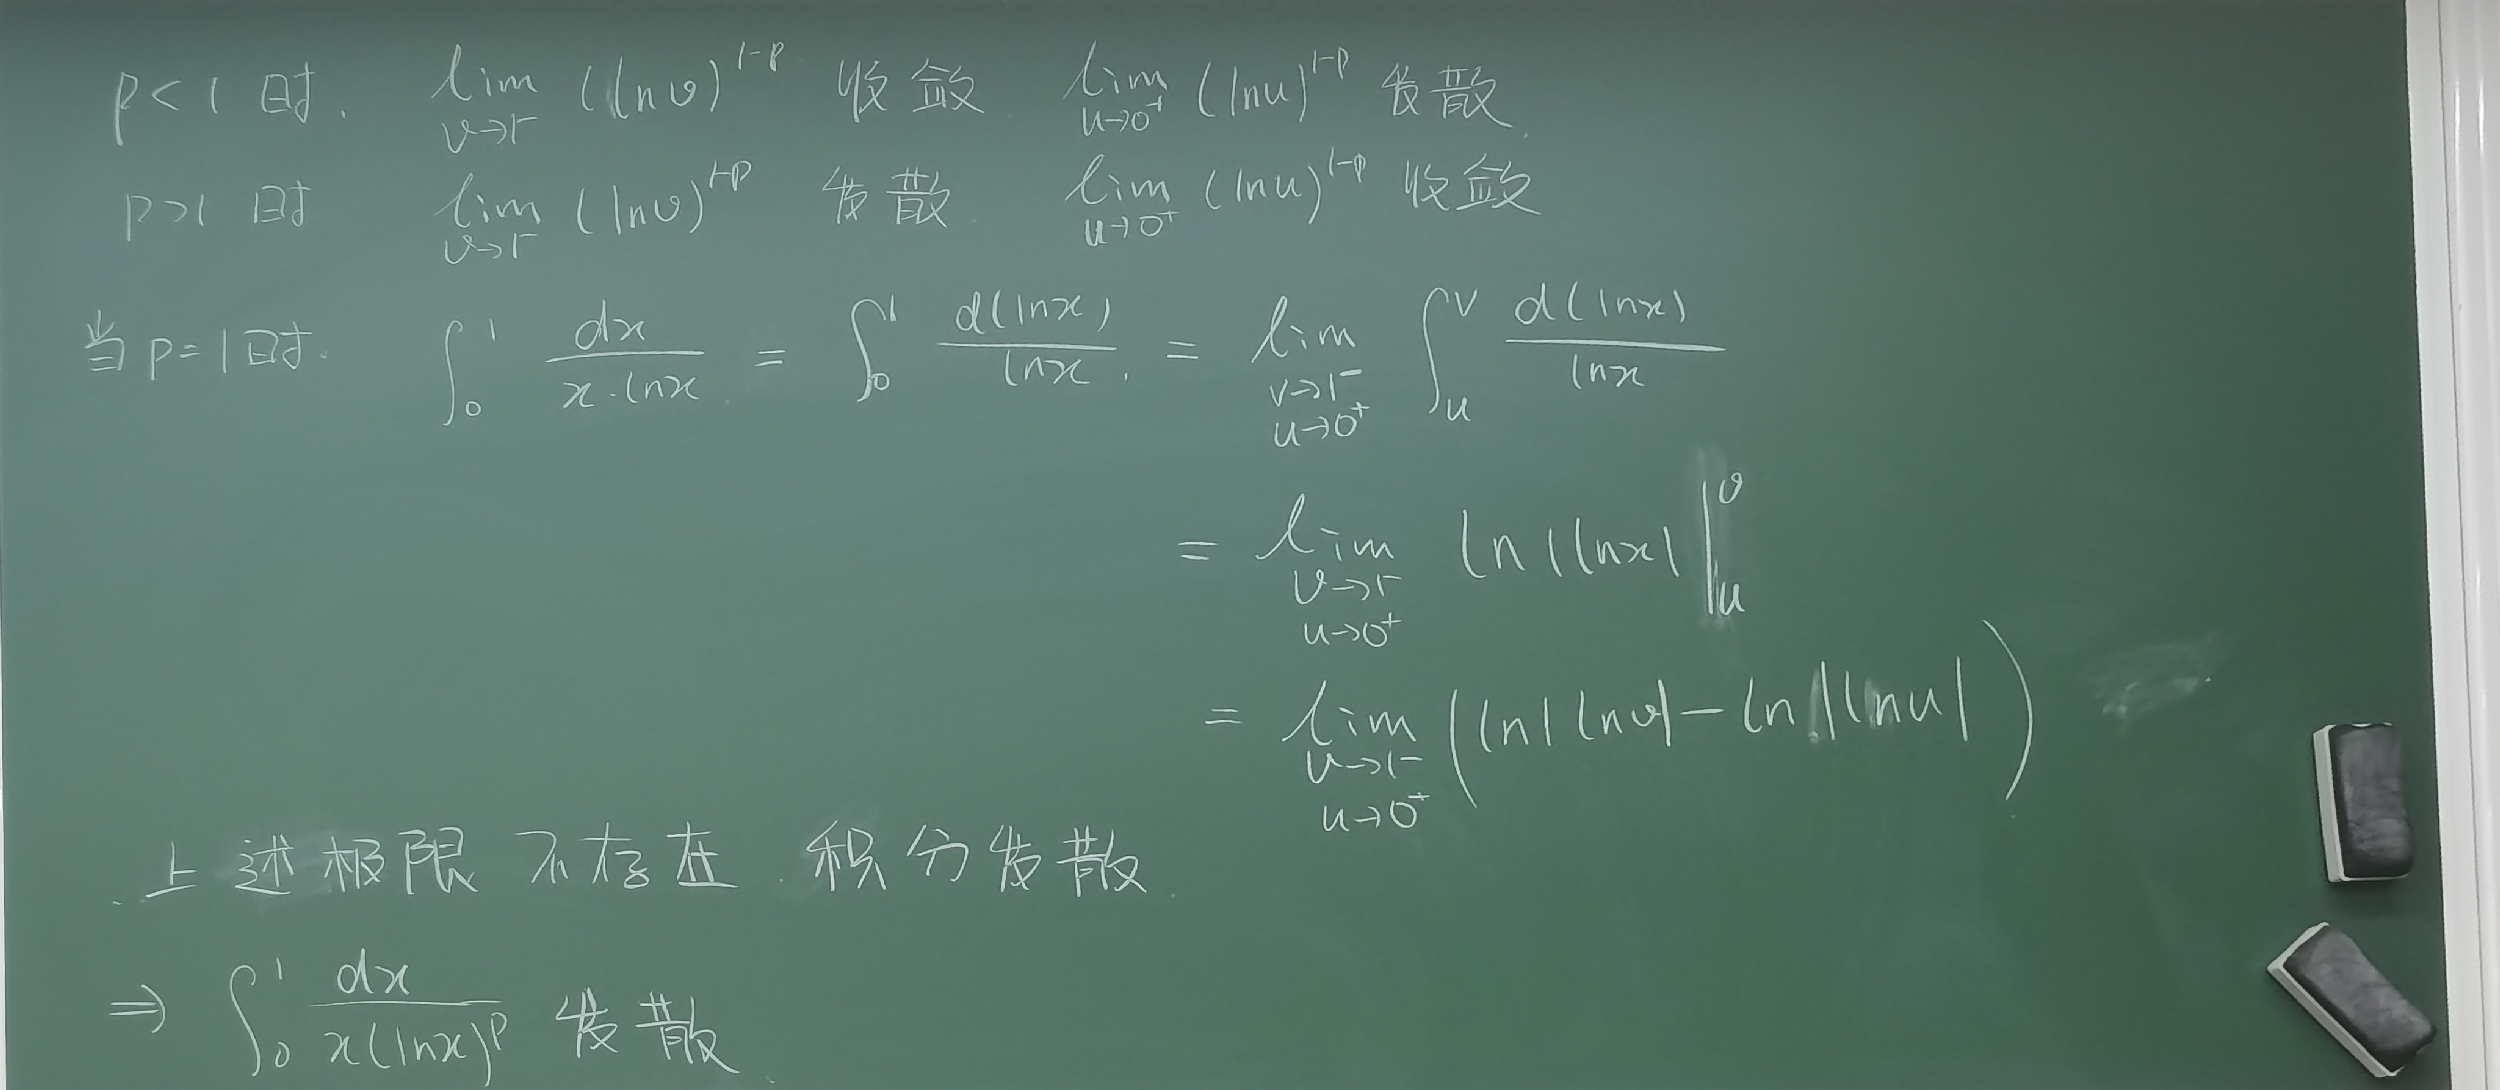 p<1时. lim v→1⁻ (ln v)^{1-p} 收敛 lim u→0⁺ (ln u)^{1-p} 发散.
p>1时 lim v→1⁻ (ln v)^{1-p} 发散. lim u→0⁺ (ln u)^{1-p} 收敛
当p=1时. ∫₀¹ dx/(x·ln x) = ∫₀¹ d(ln x)/ln x. = lim v→1⁻ u→0⁺ ∫_u^v d(ln x)/ln x
= lim v→1⁻ u→0⁺ ln|ln x| |_u^v
= lim v→1⁻ u→0⁺ (ln|ln v| - ln|ln u|)
上述极限不存在. 积分发散.
⇒ ∫₀¹ dx/(x(ln x)^p) 发散.